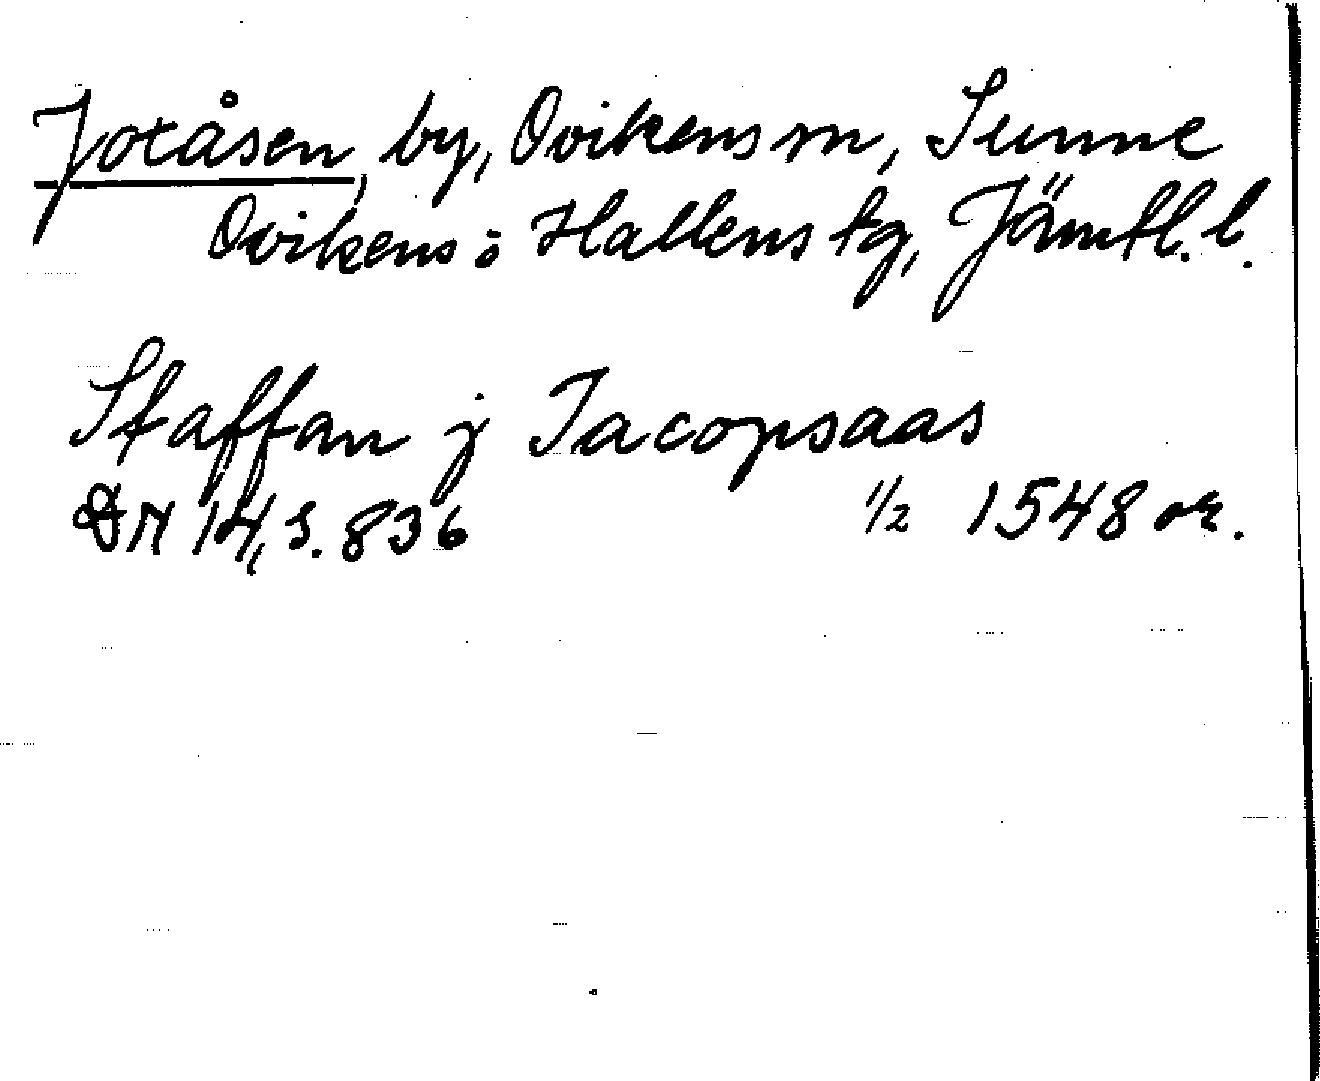 Jotåsen, by, Ovikens sn, Sunne
Ovikens o Hallens tg, Jämtl. l.
Staffan j Jacopsaas
DN 14, s. 836 1/2 1548 or.